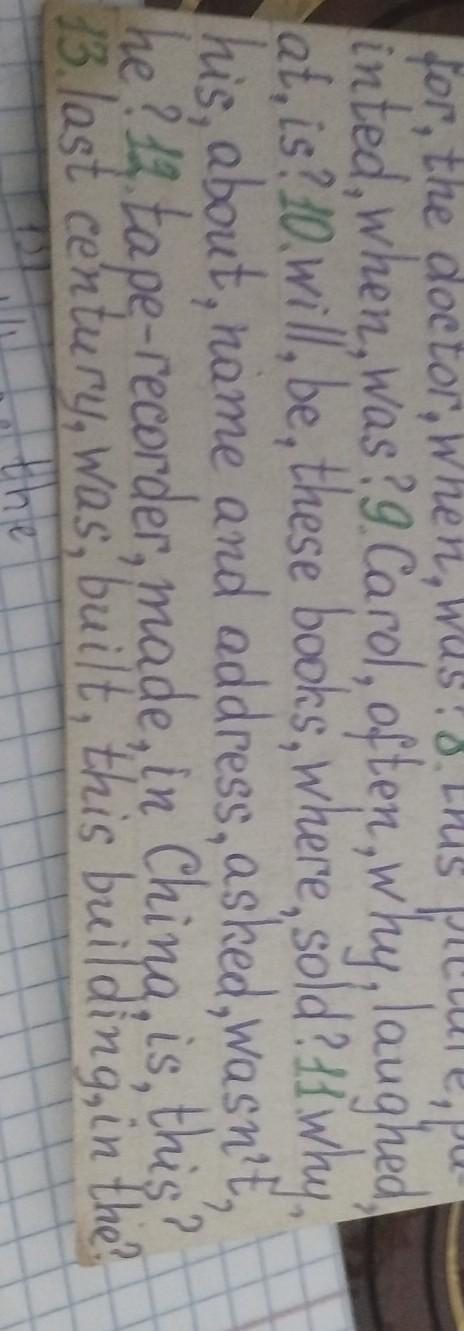 for, the doctor, when, was? 8. This picture, pa-
inted, when, was? 9. Carol, often, why, laughed,
at, is? 10. will, be, these books, where, sold? 11. Why,
his, about, name and address, asked, wasn't,
he? 12. tape-recorder, made, in China, is, this?
13. last century, was, built, this building, in the?
the